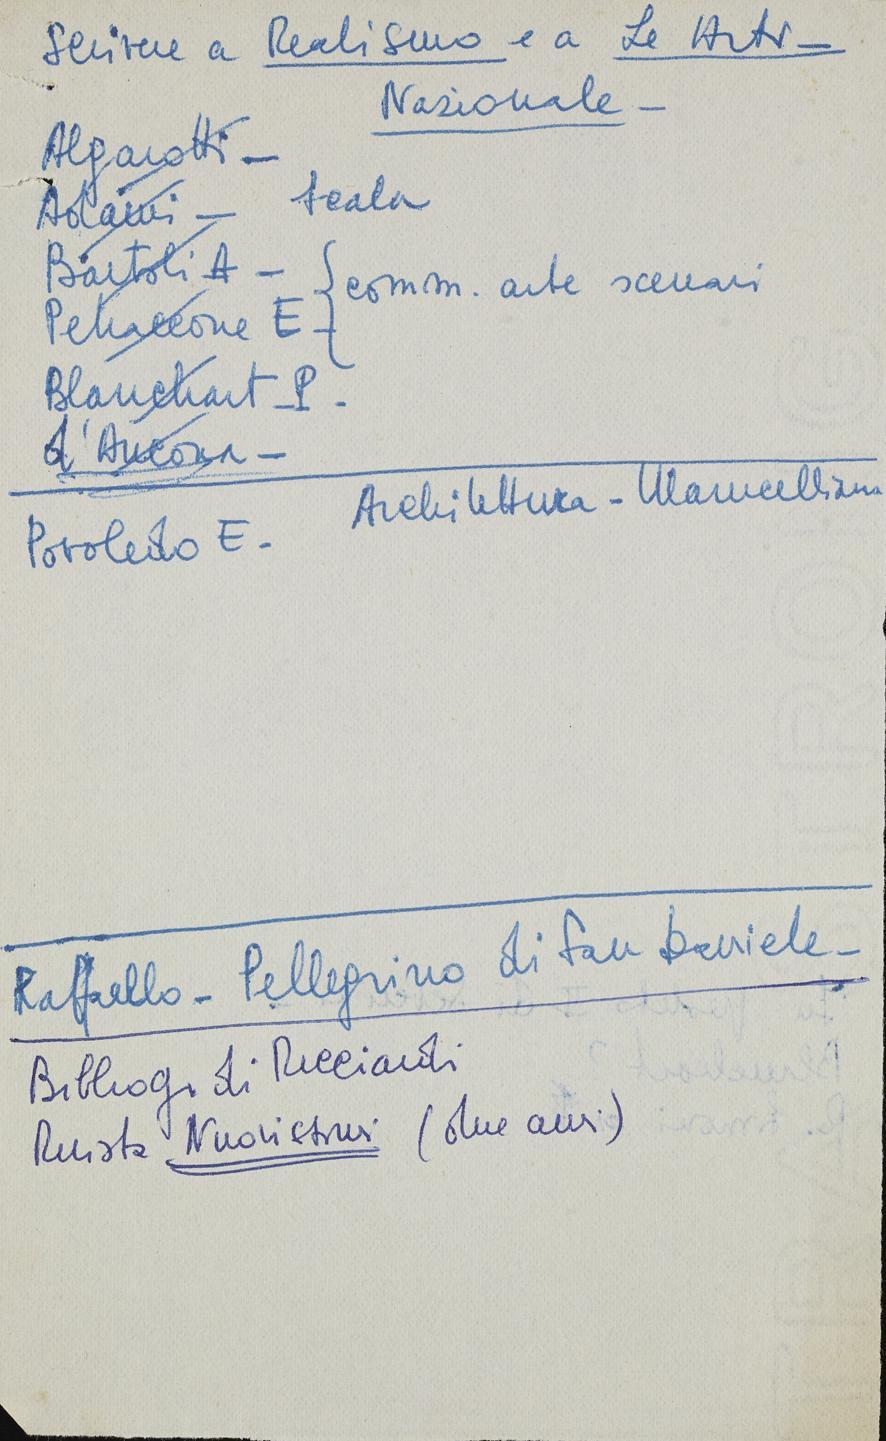 Scrivere a Realismo e a Le Arti -
Nazionale -
Algarotti -
Adami - Scala
Bartoli A -
Petraccone E - } comm. arte scenari
Blanchart P. -
d'Ancona -
Architettura - Marucelliana
Povoledo E. -
Raffaello - Pellegrino di San Daniele -
Bibliog. di Ricciardi
Rivista (due anni)